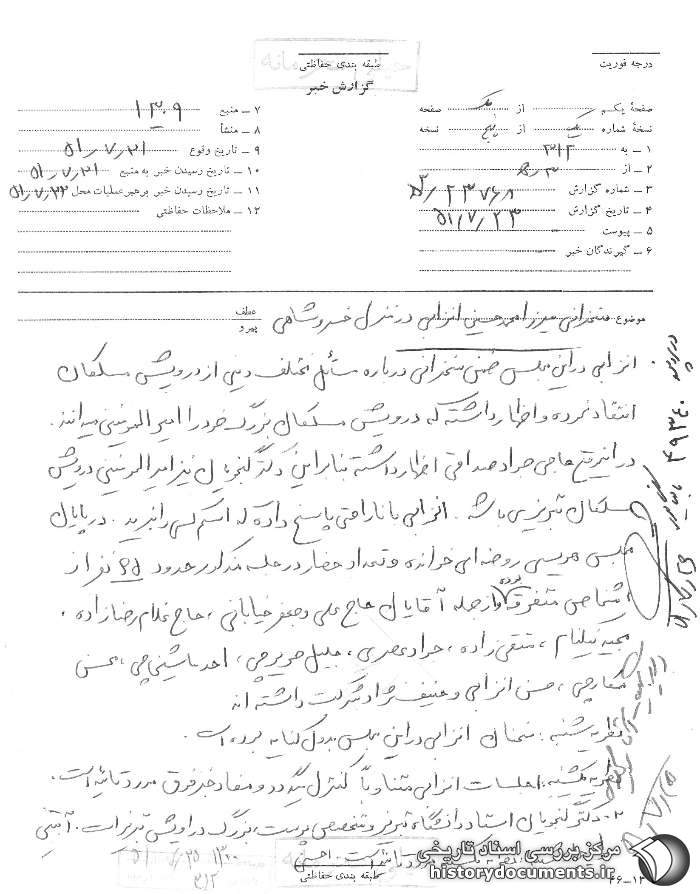 درجه فوریت
طبقه بندی حفاظتی
گزارش خبر
صفحهٔ یکم از یک صفحه
نسخهٔ شماره یک از پنج نسخه
۱ ـ به ۳۱۲
۲ ـ از
۳ ـ شماره گزارش
۴ ـ تاریخ گزارش ۵۱/۷/۲۳
۵ ـ پیوست
۶ ـ گیرندگان خبر
۷ ـ منبع ۱۳۰۹
۸ ـ منشأ
۹ ـ تاریخ وقوع ۵۱/۷/۲۱
۱۰ ـ تاریخ رسیدن خبر به منبع ۵۱/۷/۲۱
۱۱ ـ تاریخ رسیدن خبر برهبر عملیات محل ۵۱/۷/۲۲
۱۲ ـ ملاحظات حفاظتی
موضوع سخنرانی میرزا محمدحسین انزابی در منزل خسروشاهی
عطف
پیرو
انزابی در این مجلس ضمن سخنرانی درباره مسائل مختلف دینی از درویش مسلکان
انتقاد نموده و اظهار داشته که درویش مسلکان بزرگ خود را امیرالمومنین میدانند.
در این موقع حاجی جواد صداقتی اظهار داشته بنابراین دکتر گنجویان نیز امیرالمومنین درویش
مسلکان تبریزی باشد. انزابی با ناراحتی پاسخ داده که اسم کسی را نبرید. در پایان
مجلس روضه‌ای خوانده و تعداد حضار در جلسه مذکور حدود ۶۵ نفر از
اشخاص متفرقه بوده و از جمله آقایان حاج علی و جعفر خیابانی، حاج غلام رضازاده،
متقی زاده، جواد عصری، جلیل حریرچی، احد ماشینچی، محسن
حسن انزابی و حنیف نژاد شرکت داشته اند
نظریه شنبه: سخنان انزابی در این مجلس بدون کنایه بوده است.
نظریه یکشنبه: ۱ـ جلسات انزابی متناوباً کنترل میگردد و مفاد خبر فوق مورد تائید است.
۲ـ دکتر گنجویان استاد دانشگاه تبریز و شخص سرپرست بزرگ دراویش تبریز است. آبتین
طبقه بندی حفاظتی
مرکز بررسی اسناد تاریخی
historydocuments.ir